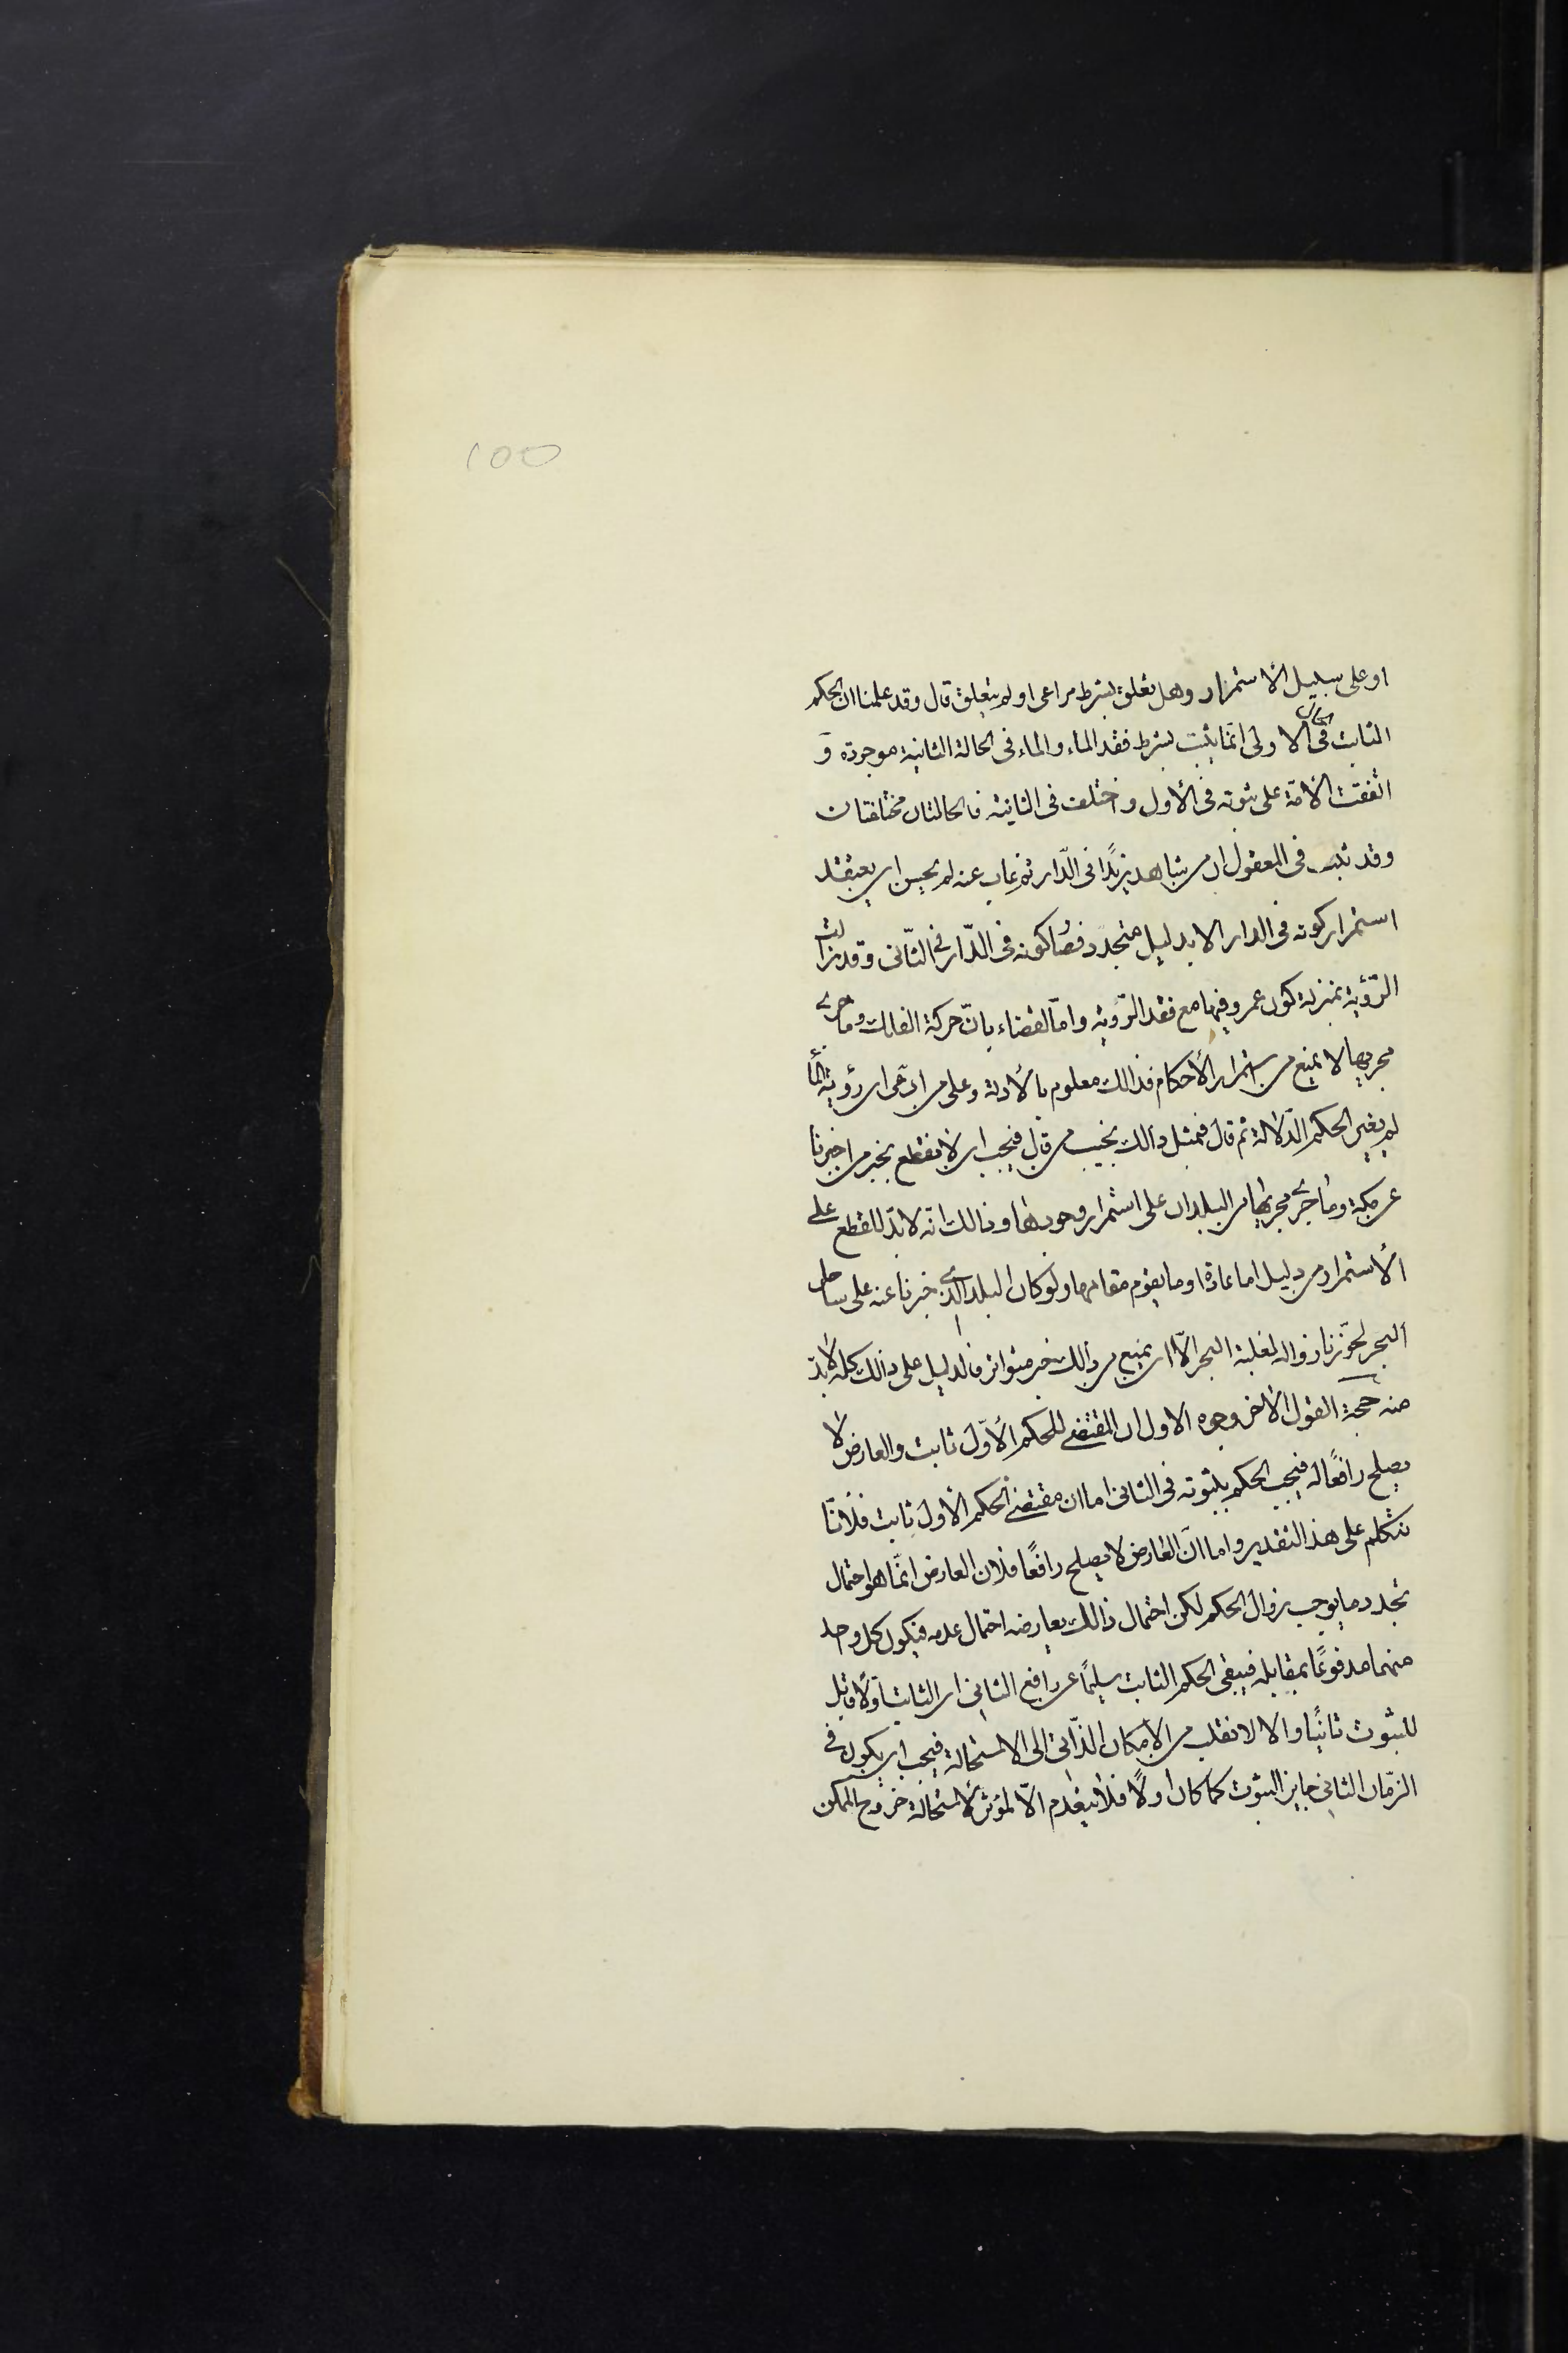 100
او على سبيل الأستمرار وهل تعلق بشرط مراعى او لم يتعلق قال وقد علمنا ان الحكم
الثابت فى الحال الاولى انما يثبت بشرط فقد الماء والماء فى الحالة الثانية موجودة و
اتفقت الأمة على ثبوته فى الأول واختلف فى الثانية فالحالتان مختلفتان
وقد ثبت فى العقول ان من شاهد زيدًا فى الدّار ثم غاب عنه لم يحسن ان يعتقد
استمرار كونه فى الدار الا بدليل متجدّد فصار كونه فى الدّار فى الثّانى وقد زالت
الرّؤية بمنزلة كون عمرو فيها مع فقد الرّؤية وامّا القضاء بانّ حركة الفلك وما جرى
مجريها لا يمنع من استمرار الأحكام فذالك معلوم بالأدلة وعلى من ادّعى ان رؤية الماء
لم يغير الحكم الدّلالة ثم قال فمثل ذالك نجيب من قال فيجب ان لا نقطع بخبر من اخبرنا
عن مكة وما جرى مجريها من البلدان على استمرار وجودها وذالك انه لا بدّ للقطع على
الأستمرار من دليل اما عادة او ما يقوم مقامها ولو كان البلد الذى خبرنا عنه على ساحل
البحر لجوّزنا زواله لغلبة البحر الّا ان يمنع من ذالك خبر متواتر فالدليل على ذالك كله لا بدّ
منه حجة القول الأخر وجوه الاول ان المقتضى للحكم الأوّل ثابت والعارض لا
يصلح رافعًا له فيجب الحكم بثبوته فى الثانى اما ان مقتضى الحكم الأول ثابت فلانّا
نتكلم على هذ التقدير واما انّ العارض لا يصلح رافعًا فلان العارض انّما هو احتمال
تجدد ما يوجب زوال الحكم لكن احتمال ذالك يعارضه احتمال عدمه فيكون كل واحد
منهما مدفوعًا بمقابله فيبقى الحكم الثابت سليمًا عن رافع الثانى ان الثابت اوّلا قابل
للثبوت ثانيًا والا لانقلب من الأمكان الذّاتى الى الاستحالة فيجب ان يكون فى
الزّمان الثانى جايز الثبوت كما كان اولًا فلا ينعدم الّا لمؤثر لاستحالة خروج الممكن